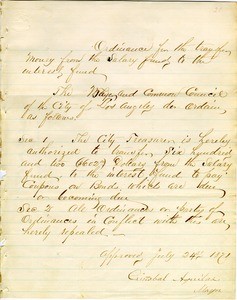 Ordinance for the transfer
money from the Salary fund, to the
interest fund
The Mayor and Common Council
of the City of Los Angeles do ordain
as follows.
Sec 1. The City Treasurer is hereby
authorized to transfer Six hundred
and two (602) Dollars from the Salary
fund, to the interest fund to pay
Coupons on Bonds, which are due
or becoming due
Sec 2. All Ordinances or parts of
Ordinances in conflict with this are
hereby repealed.
Approved July 24th 1871
Cristobal Aguilar
Mayor